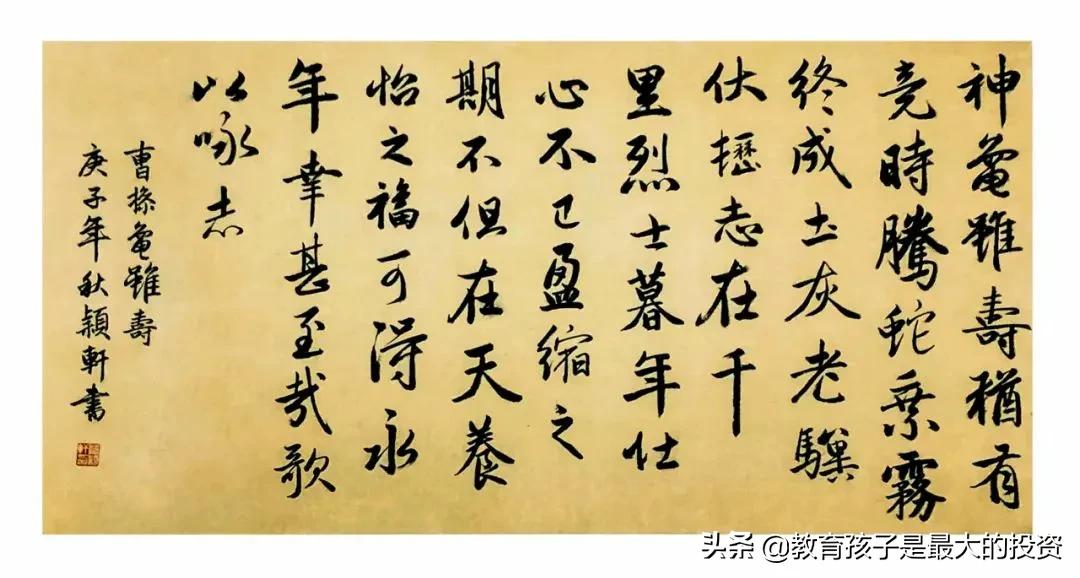 神龜雖壽猶有
竞時騰蛇乘霧
終成土灰老驥
伏櫪志在千
里烈士暮年仕
心不已盈縮之
期不但在天養
怡之福可得永
年幸甚至哉歌
以咏志
曹操龜雖壽
庚子年秋穎軒書
头条 @教育孩子是最大的投资